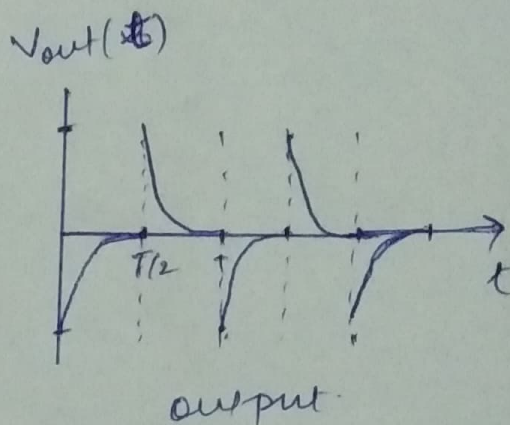 Vout(t)
T/2
T
t
output